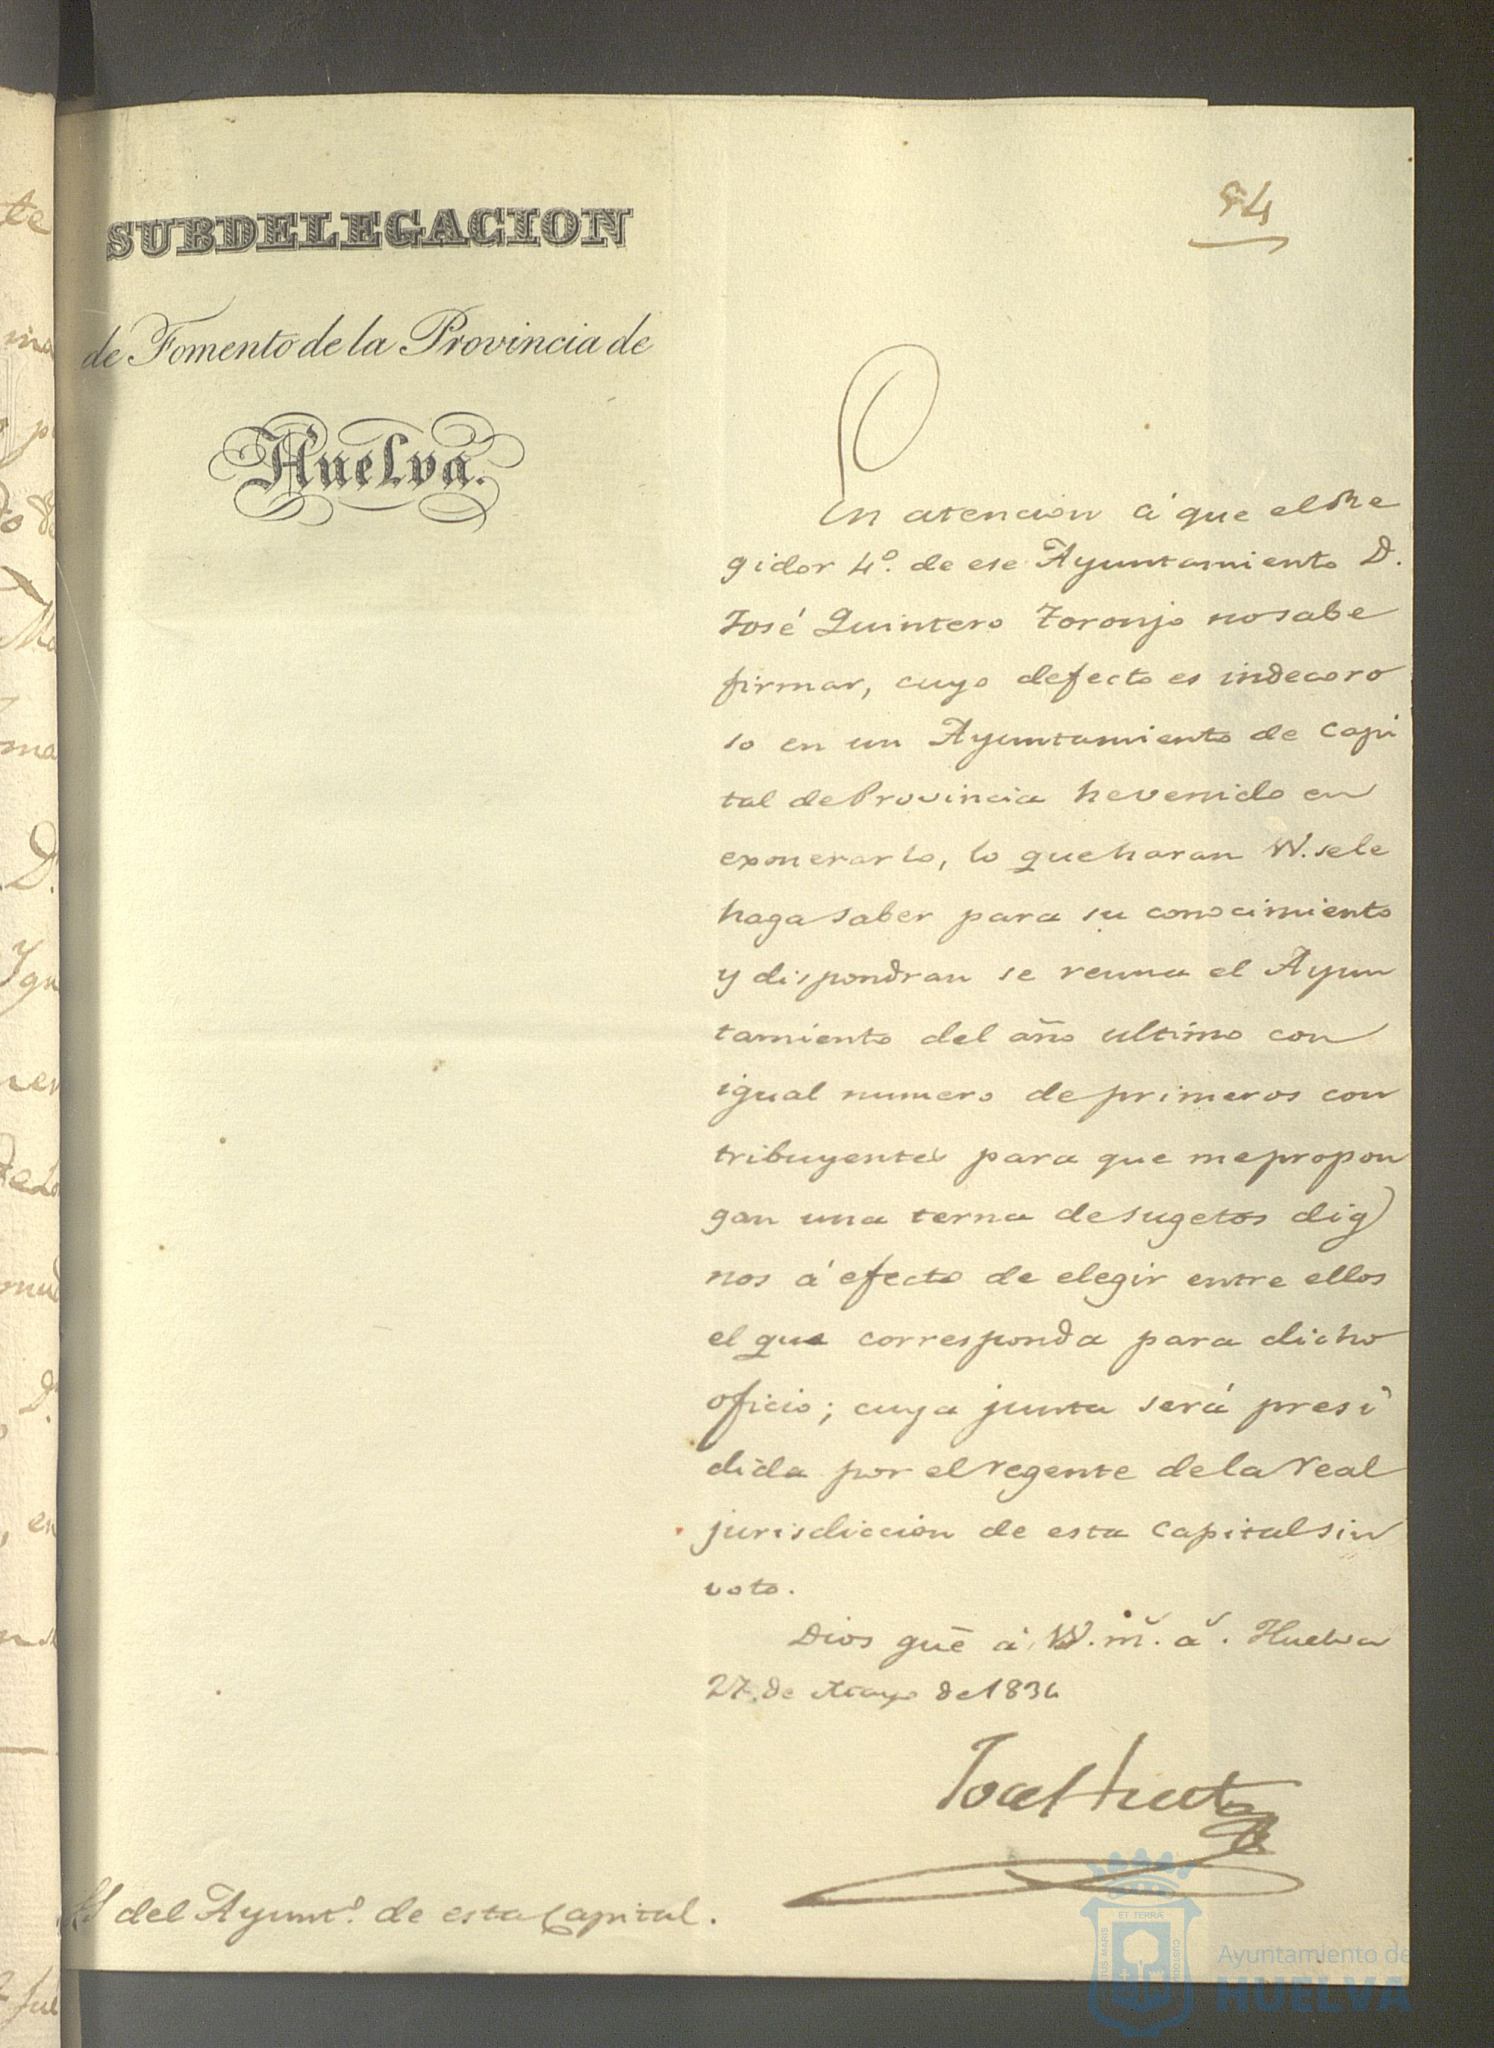 SUBDELEGACION
de Fomento de la Provincia de
Huelva.
94
En atencion á que el Re
gidor 4º. de ese Ayuntamiento D.
José Quintero Toronjo no sabe
firmar, cuyo defecto es indecoro
so en un Ayuntamiento de Capi
tal de Provincia he venido en
exonerarlo, lo que haran VV. se le
haga saber para su conocimiento
y dispondran se reuna el Ayun
tamiento del año ultimo con
igual numero de primeros con
tribuyentes para que me propon
gan una terna de sugetos dig
nos á efecto de elegir entre ellos
el que corresponda para dicho
oficio; cuya junta será presi
dida por el regente de la real
jurisdiccion de esta Capital sin
voto.
Dios gue á VV. m.s a.s. Huelva
27. de Mayo de 1834
del Ayunt.o de esta Capital.
ET TERRÆ
Ayuntamiento de
HUELVA